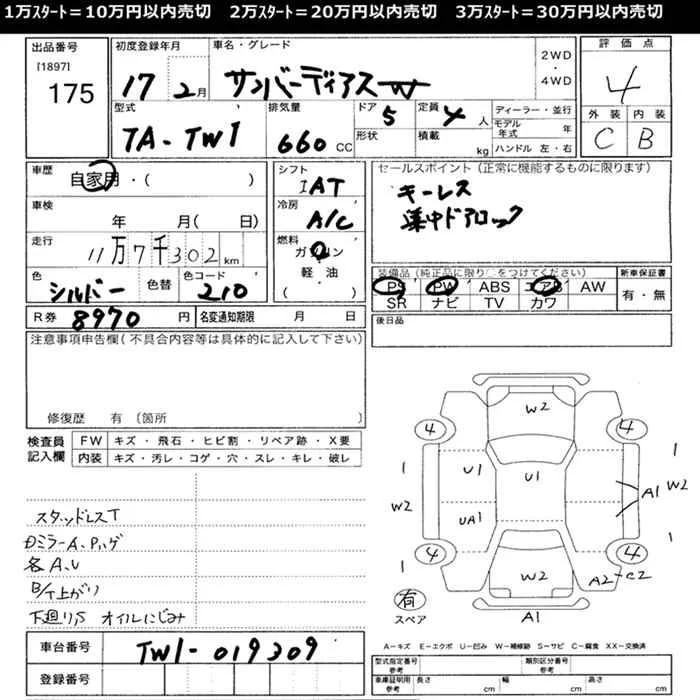 1万スタート＝10万円以内売切　2万スタート＝20万円以内売切　3万スタート＝30万円以内売切
出品番号
[1897]
175
初度登録年月
17 2月
車名・グレード
サンバーディアス W
2WD
・
4WD
評価点
4
外装 内装
C B
型式
TA-TW1
排気量
660 CC
ドア 5
形状
定員 4 人
積載 kg
ディーラー・並行
モデル年式 年
ハンドル 左・右
車歴
自家用・( )
車検
年 月( 日)
走行
11万7千302km
色
シルバー
色替
色コード
210
シフト
IAT
冷房
A/C
燃料
ガソリン
軽油
( )
セールスポイント (正常に機能するものに限ります)
キーレス
集中ドアロック
装備品 (純正品に限り○をつけてください)
PS PW ABS エアB AW
SR ナビ TV カワ
新車保証書
有・無
R券 8970 円
名変通知期限 月 日
後日品
注意事項申告欄(不具合内容等は具体的に記入して下さい)
修復歴 有 〔箇所 〕
検査員
記入欄
FW キズ・飛石・ヒビ割・リペア跡・X要
内装 キズ・汚レ・コゲ・穴・スレ・キレ・破レ
スタッドレスT
各A、U
下廻りS オイルにじみ
W2
4 4
1 1
U1 U1
W2 A1 W2
UA1
1 1
4 4
W2
A2-C2
有
スペア
A1
A－キズ E－エクボ U－凹み W－補修跡 S－サビ C－腐食 XX－交換済
車台番号
TW1-019309
登録番号
型式指定番号
参考
類別区分番号
参考
車庫証明用
参考
長さ cm
幅 cm
高さ cm